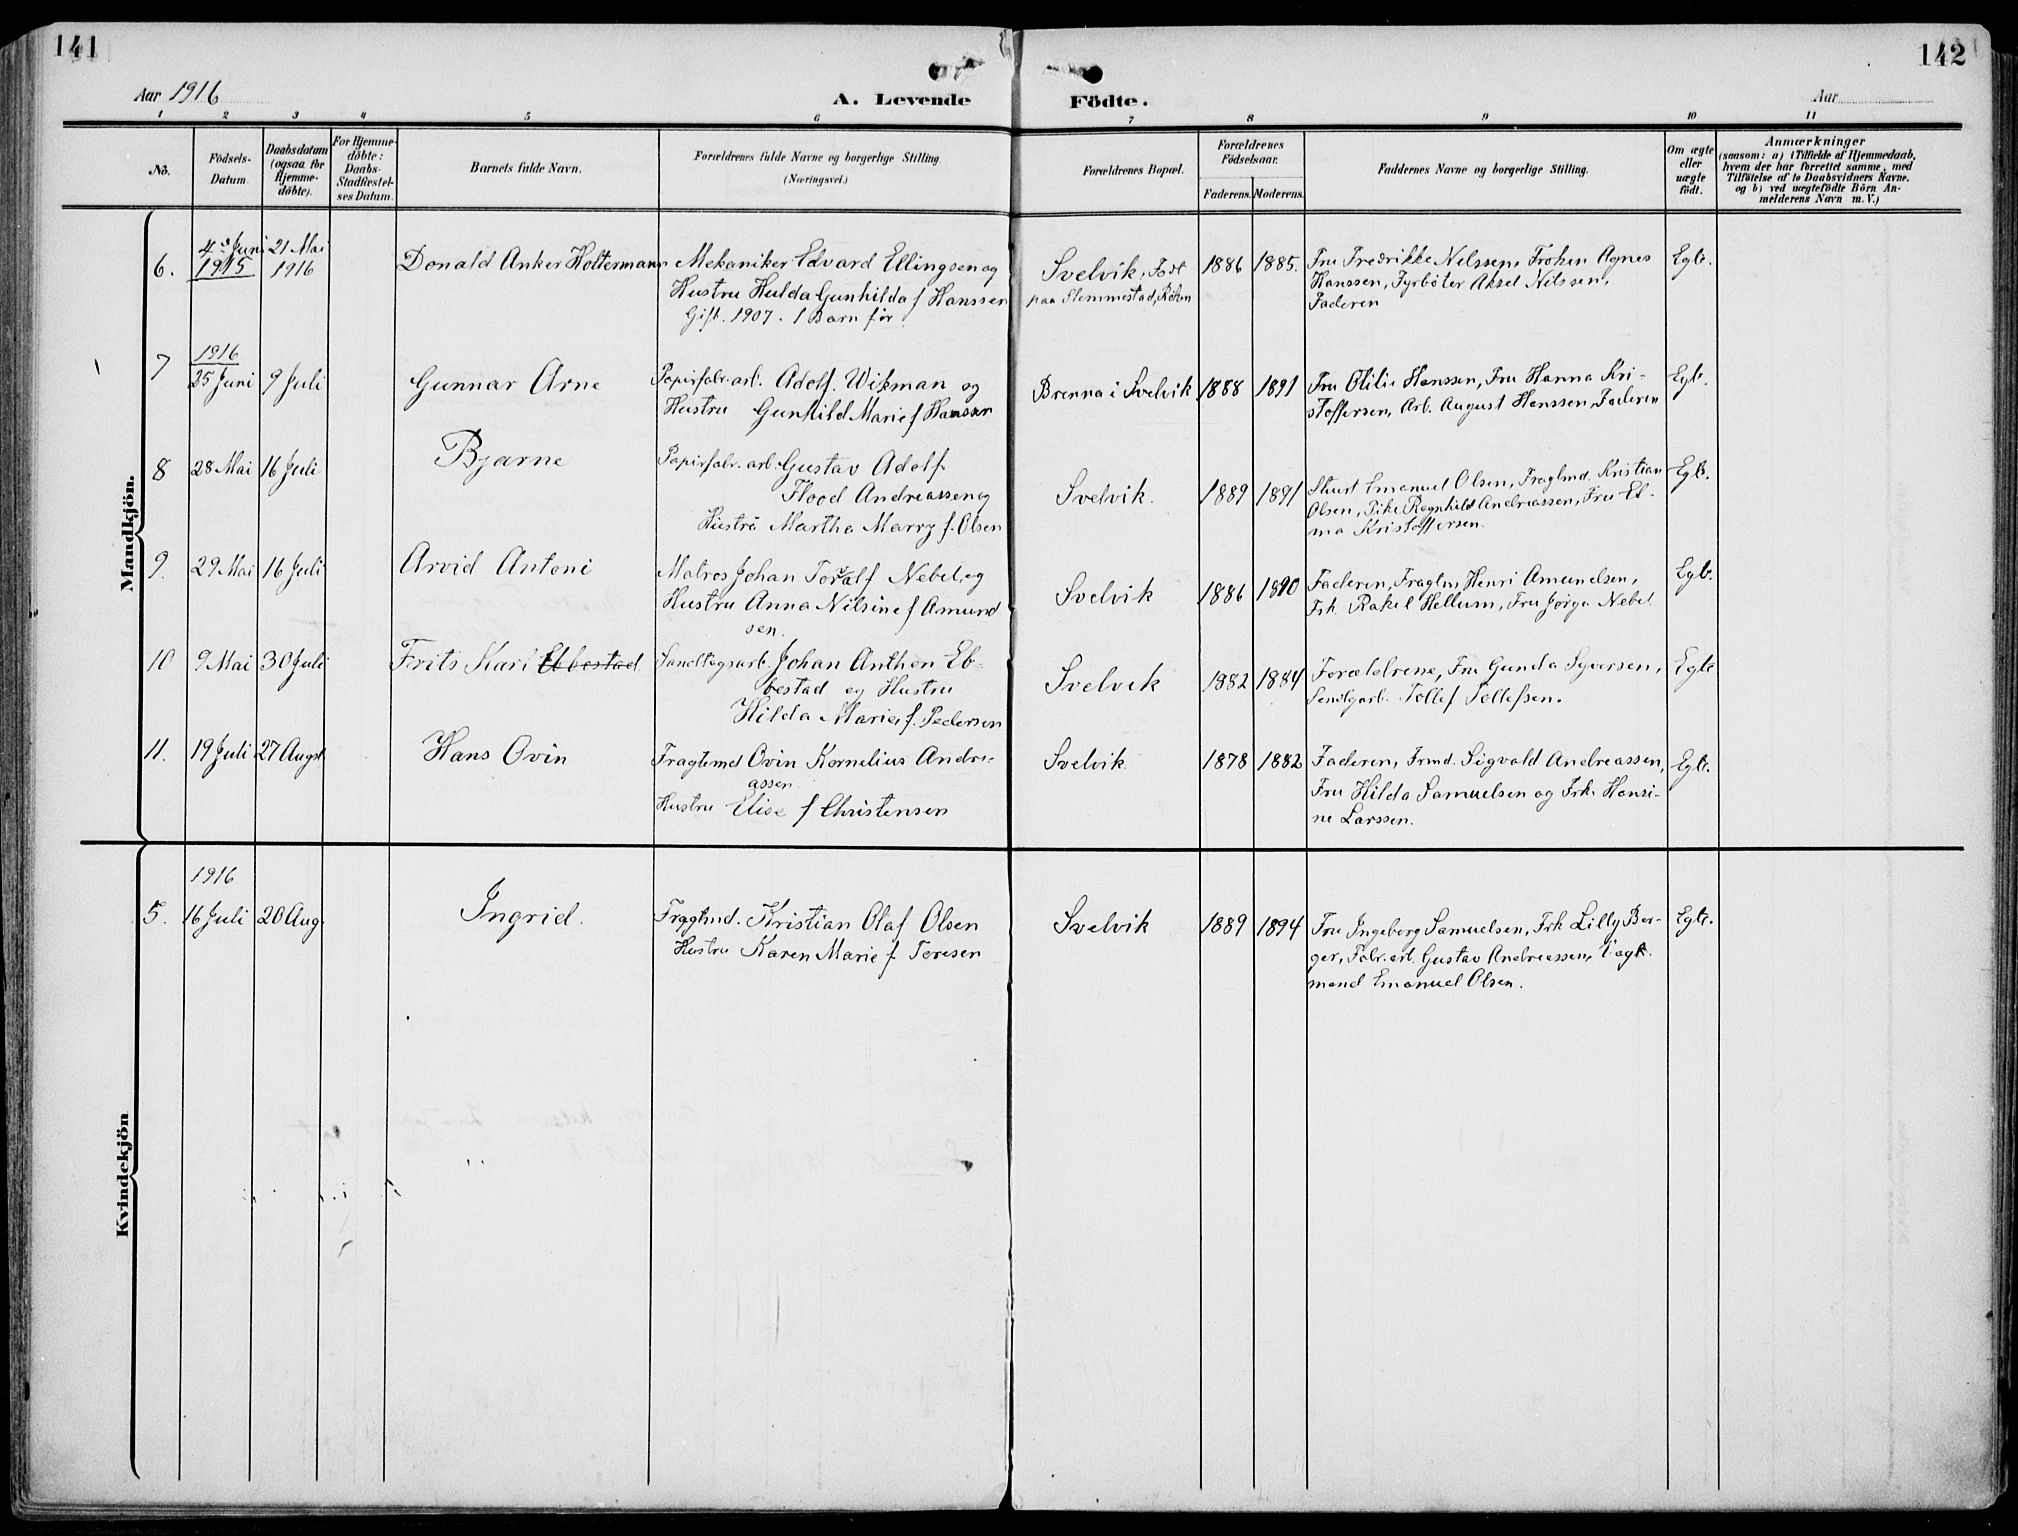 141
142
Aar 1916
A. Levende
Födte.
Aar
1 2 3 4 5 6 7 8 9 10 11
No.
Födsels-
Datum.
Daabsdatum
(ogsaa for
Hjemme-
döbte).
For Hjemme-
döbte:
Daabs-
Stadfæstel-
ses Datum.
Barnets fulde Navn.
Forældrenes fulde Navne og borgerlige Stilling.
(Næringsvei.)
Forældrenes Bopæl.
Forældrenes
Födselsaar.
Faderens.
Moderens.
Faddernes Navne og borgerlige Stilling.
Om ægte
eller
uægte
födt.
Anmærkninger
(saasom: a) i Tilfælde af Hjemmedaab,
hvem der har forrettet samme, med
Tilföielse af to Daabsvidners Navne.
og b) ved uægtefödte Börn An-
melderens Navn m. V.)
Mandkjön.
6.
4 Juni
1915
21 Mai
1916
Donald Anker Holtermann
Mekaniker Edvard Ellingsen og
Hustru Hulda Gunhilda f Hanssen
Gift. 1907. 1 Barn før
Svelvik, Født
paa Slemmestad, Røken
1886
1885.
Fru Fredrikke Nilssen, Frøken Agnes
Hanssen, Fyrbøter Aksel Nilssen,
Faderen
Egte.
7
1916
25 Juni
9 Juli
Gunnar Arne
Papirfabr.arb. Adolf Wikman og
Hustru Gunhild Marie f Hanssen
Brenna i Svelvik
1888
1891
Fru Otilie Hanssen, Fru Hanna Kri-
stoffersen, Arb. August Hanssen, Faderen
Egte.
8
28 Mai
16 Juli
Bjarne
Papirfabr. arb. Gustav Adolf
Flood Andreassen og
Hustru Martha Marry f. Olsen
Svelvik.
1889
1891
Stuert Emanuel Olsen, Fragtmd. Kristian
Olsen, Pike Ragnhild Andreassen, Fru El-
ma Kristoffersen.
Egte.
9.
29 Mai
16 Juli
Arvid Antoni
Matros Johan Toralf Nebel og
Hustru Anna Nilsine f Amund
sen.
Svelvik
1886
1890
Faderen, Fragtm. Henri Amundsen,
Frk. Rakel Hellum, Fru Jørga Nebel.
Egte.
10
9 Mai
30 Juli
Frits Karl Ebbestad
Sandtagsarb. Johan Anthon Eb-
bestad og Hustru
Hilda Marie f. Pedersen
Svelvik
1882
1884
Forældrene, Fru Gunda Syversen,
Sandtgarb. Tollef Tollefsen.
Egte
11.
19 Juli
27 Augst
Hans Ovin
Fragtmd Ovin Kornelius Andre-
assen.
Hustru Elise f Christensen
Svelvik
1878
1882
Faderen, Frmd. Sigvald Andreassen,
Fru Hilda Samuelsen og Frk. Hansi-
ne Larssen.
Egte.
Kvindekjön
5.
1916
16 Juli
20 Aug.
Ingrid.
Fragtmd. Kristian Olaf Olsen
Hustru Karen Marie f. Toresen
Svelvik
1889
1894
Fru Ingeborg Samuelsen, Frk Lilly Ber-
ger, Fabr. arb. Gustav Andreassen, Vagt-
mand Emanuel Olsen.
Egte.